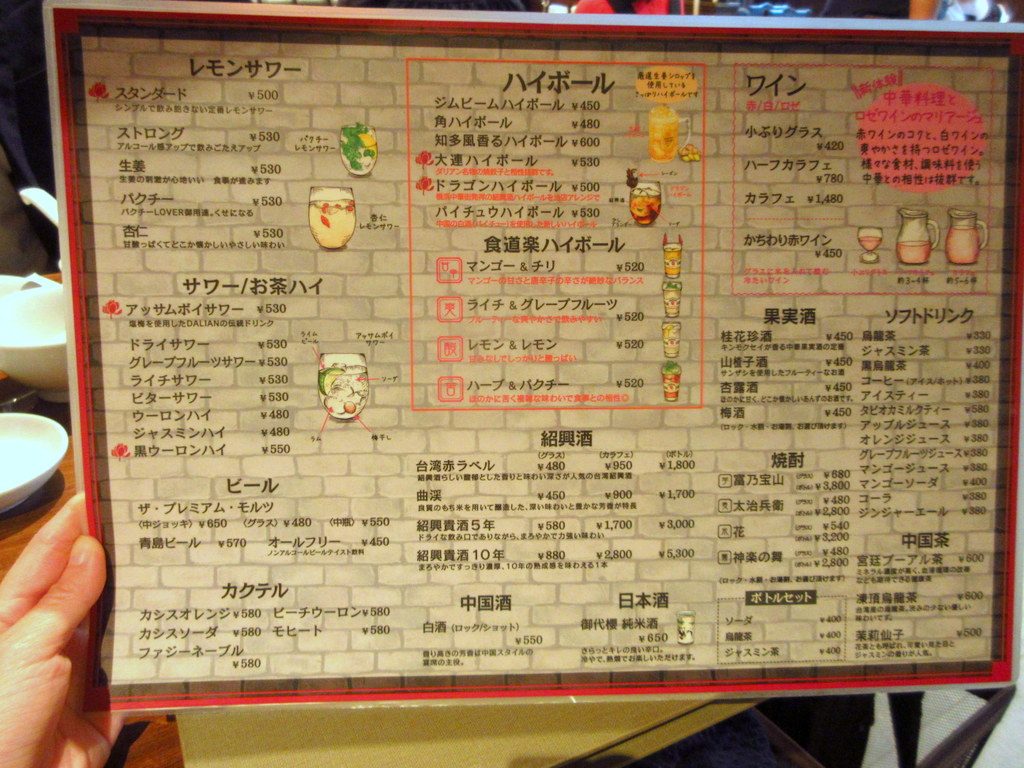 レモンサワー
スタンダード ¥500
シンプルで飲み飽きない定番レモンサワー
ストロング ¥530
アルコール感アップで飲みごたえアップ
生姜 ¥530
生姜の刺激が心地いい 食事が進みます
パクチー ¥530
パクチーLOVER御用達。くせになる
杏仁 ¥530
甘酸っぱくてどこか懐かしいやさしい味わい
パクチー
レモンサワー
杏仁
レモンサワー
サワー/お茶ハイ
アッサムボイサワー ¥530
塩梅を使用したDALIANの伝統ドリンク
ドライサワー ¥530
グレープフルーツサワー ¥530
ライチサワー ¥530
ビターサワー ¥530
ウーロンハイ ¥480
ジャスミンハイ ¥480
黒ウーロンハイ ¥550
ライム
ビール
アッサムボイ
サワー
ソーダ
ラム
梅干し
ビール
ザ・プレミアム・モルツ
(中ジョッキ) ¥650 (グラス) ¥480 (中瓶) ¥550
青島ビール ¥570 オールフリー ¥450
ノンアルコールビールテイスト飲料
カクテル
カシスオレンジ ¥580 ピーチウーロン ¥580
カシスソーダ ¥580 モヒート ¥580
ファジーネーブル
¥580
ハイボール
ジムビームハイボール ¥450
角ハイボール ¥480
知多風香るハイボール ¥600
大連ハイボール ¥530
ダリアン名物の焼餃子と相性抜群です。
ドラゴンハイボール ¥500
横浜中華街発祥の紹興酒ハイボールを当店アレンジで
パイチュウハイボール ¥530
中国の白酒(パイチュー)を使用した新しいハイボール
厳選生姜シロップを
使用している
さっぱりハイボールです
食道楽ハイボール
マンゴー & チリ ¥520
マンゴーの甘さと唐辛子の辛さが絶妙なバランス
ライチ & グレープフルーツ
¥520
フルーティーな爽やかさで飲みやすい
レモン & レモン ¥520
甘みなしでしっかりと酸っぱい
ハーブ & パクチー ¥520
ほのかに苦く複雑な味わいで食事との相性◎
紹興酒
(グラス) (カラフェ) (ボトル)
台湾赤ラベル ¥480 ¥950 ¥1,800
紹興酒らしい酸郁とした香りと味わい深さが人気の台湾紹興酒
曲渓 ¥450 ¥900 ¥1,700
良質のもち米を用いて醸造した、深い味わいと豊かな芳香が特長
紹興貴酒5年 ¥580 ¥1,700 ¥3,000
ドライな飲み口でありながら、まろやかで力強い味わい
紹興貴酒10年 ¥880 ¥2,800 ¥5,300
まろやかですっきり濃厚、10年の熟成感を味わえる1本
中国酒
白酒 (ロック/ショット)
¥550
香り高きの芳香は中国スタイルの
宴席の主役。
日本酒
御代櫻 純米酒
¥650
さらっとキレの良い辛口。
冷やで、熱燗でお楽しいただけます。
ワイン
赤/白/ロゼ
小ぶりグラス
¥420
ハーフカラフェ
¥780
カラフェ ¥1,480
かちわり赤ワイン
¥450
グラスに氷を入れて飲む
冷たいワイン
新体験!
中華料理と
ロゼワインのマリアージュ
赤ワインのコクと、白ワインの
爽やかさを持つロゼワイン。
様々な食材、調味料を使う
中華との相性は抜群です。
小ぶりグラス
約3~4杯
カラフェ
約5~6杯
果実酒
桂花珍酒 ¥450
キンモクセイが香る中華果実酒の定番
山樝子酒 ¥450
サンザシを使用したフルーティーなお酒
杏露酒 ¥450
ほのかに甘く、どこか懐かしいあんずのお酒です。
梅酒 ¥450
(ロック・水割・お湯割、お選び頂けます)
焼酎
芋 富乃宝山 (グラス) ¥680
(ボトル) ¥3,800
麦 太治兵衛 (グラス) ¥480
(ボトル) ¥2,800
米 花 (グラス) ¥540
(ボトル) ¥3,200
神楽の舞 (グラス) ¥480
(ボトル) ¥2,800
(ロック・水割・お湯割、お選び頂けます)
ボトルセット
ソーダ ¥400
烏龍茶 ¥400
ジャスミン茶 ¥400
ソフトドリンク
烏龍茶 ¥330
ジャスミン茶 ¥330
黒烏龍茶 ¥400
コーヒー (アイス/ホット) ¥380
アイスティー ¥380
タピオカミルクティー ¥580
アップルジュース ¥380
オレンジジュース ¥380
グレープフルーツジュース ¥380
マンゴージュース ¥380
マンゴーソーダ ¥400
コーラ ¥380
ジンジャーエール ¥380
中国茶
宮廷プーアル茶 ¥600
ミネラル濃度が高く、血液循環の改善
なども期待できる健康茶
凍頂烏龍茶 ¥600
台湾産の烏龍茶。渋みの少ない優しい
味わいです。
茉莉仙子 ¥500
花茶とも呼ばれ、可愛い見た目と
ジャスミンの香りが人気。